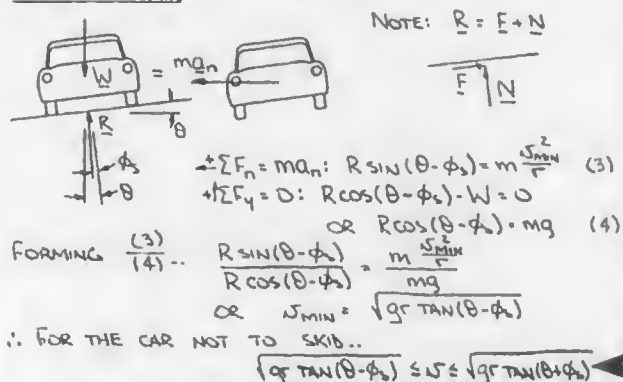 NOTE: R = F + N
W = man
R
θ
F N
φs
θ
+ΣFn = man: R SIN(θ-φs) = m v²MIN/r (3)
+↑ΣFy = 0: R COS(θ-φs) - W = 0
OR R COS(θ-φs) = mg (4)
FORMING (3)/(4).. R SIN(θ-φs)/R COS(θ-φs) = m v²MIN/r / mg
OR vMIN = √gr TAN(θ-φs)
∴ FOR THE CAR NOT TO SKID..
√gr TAN(θ-φs) ≤ v ≤ √gr TAN(θ+φs)